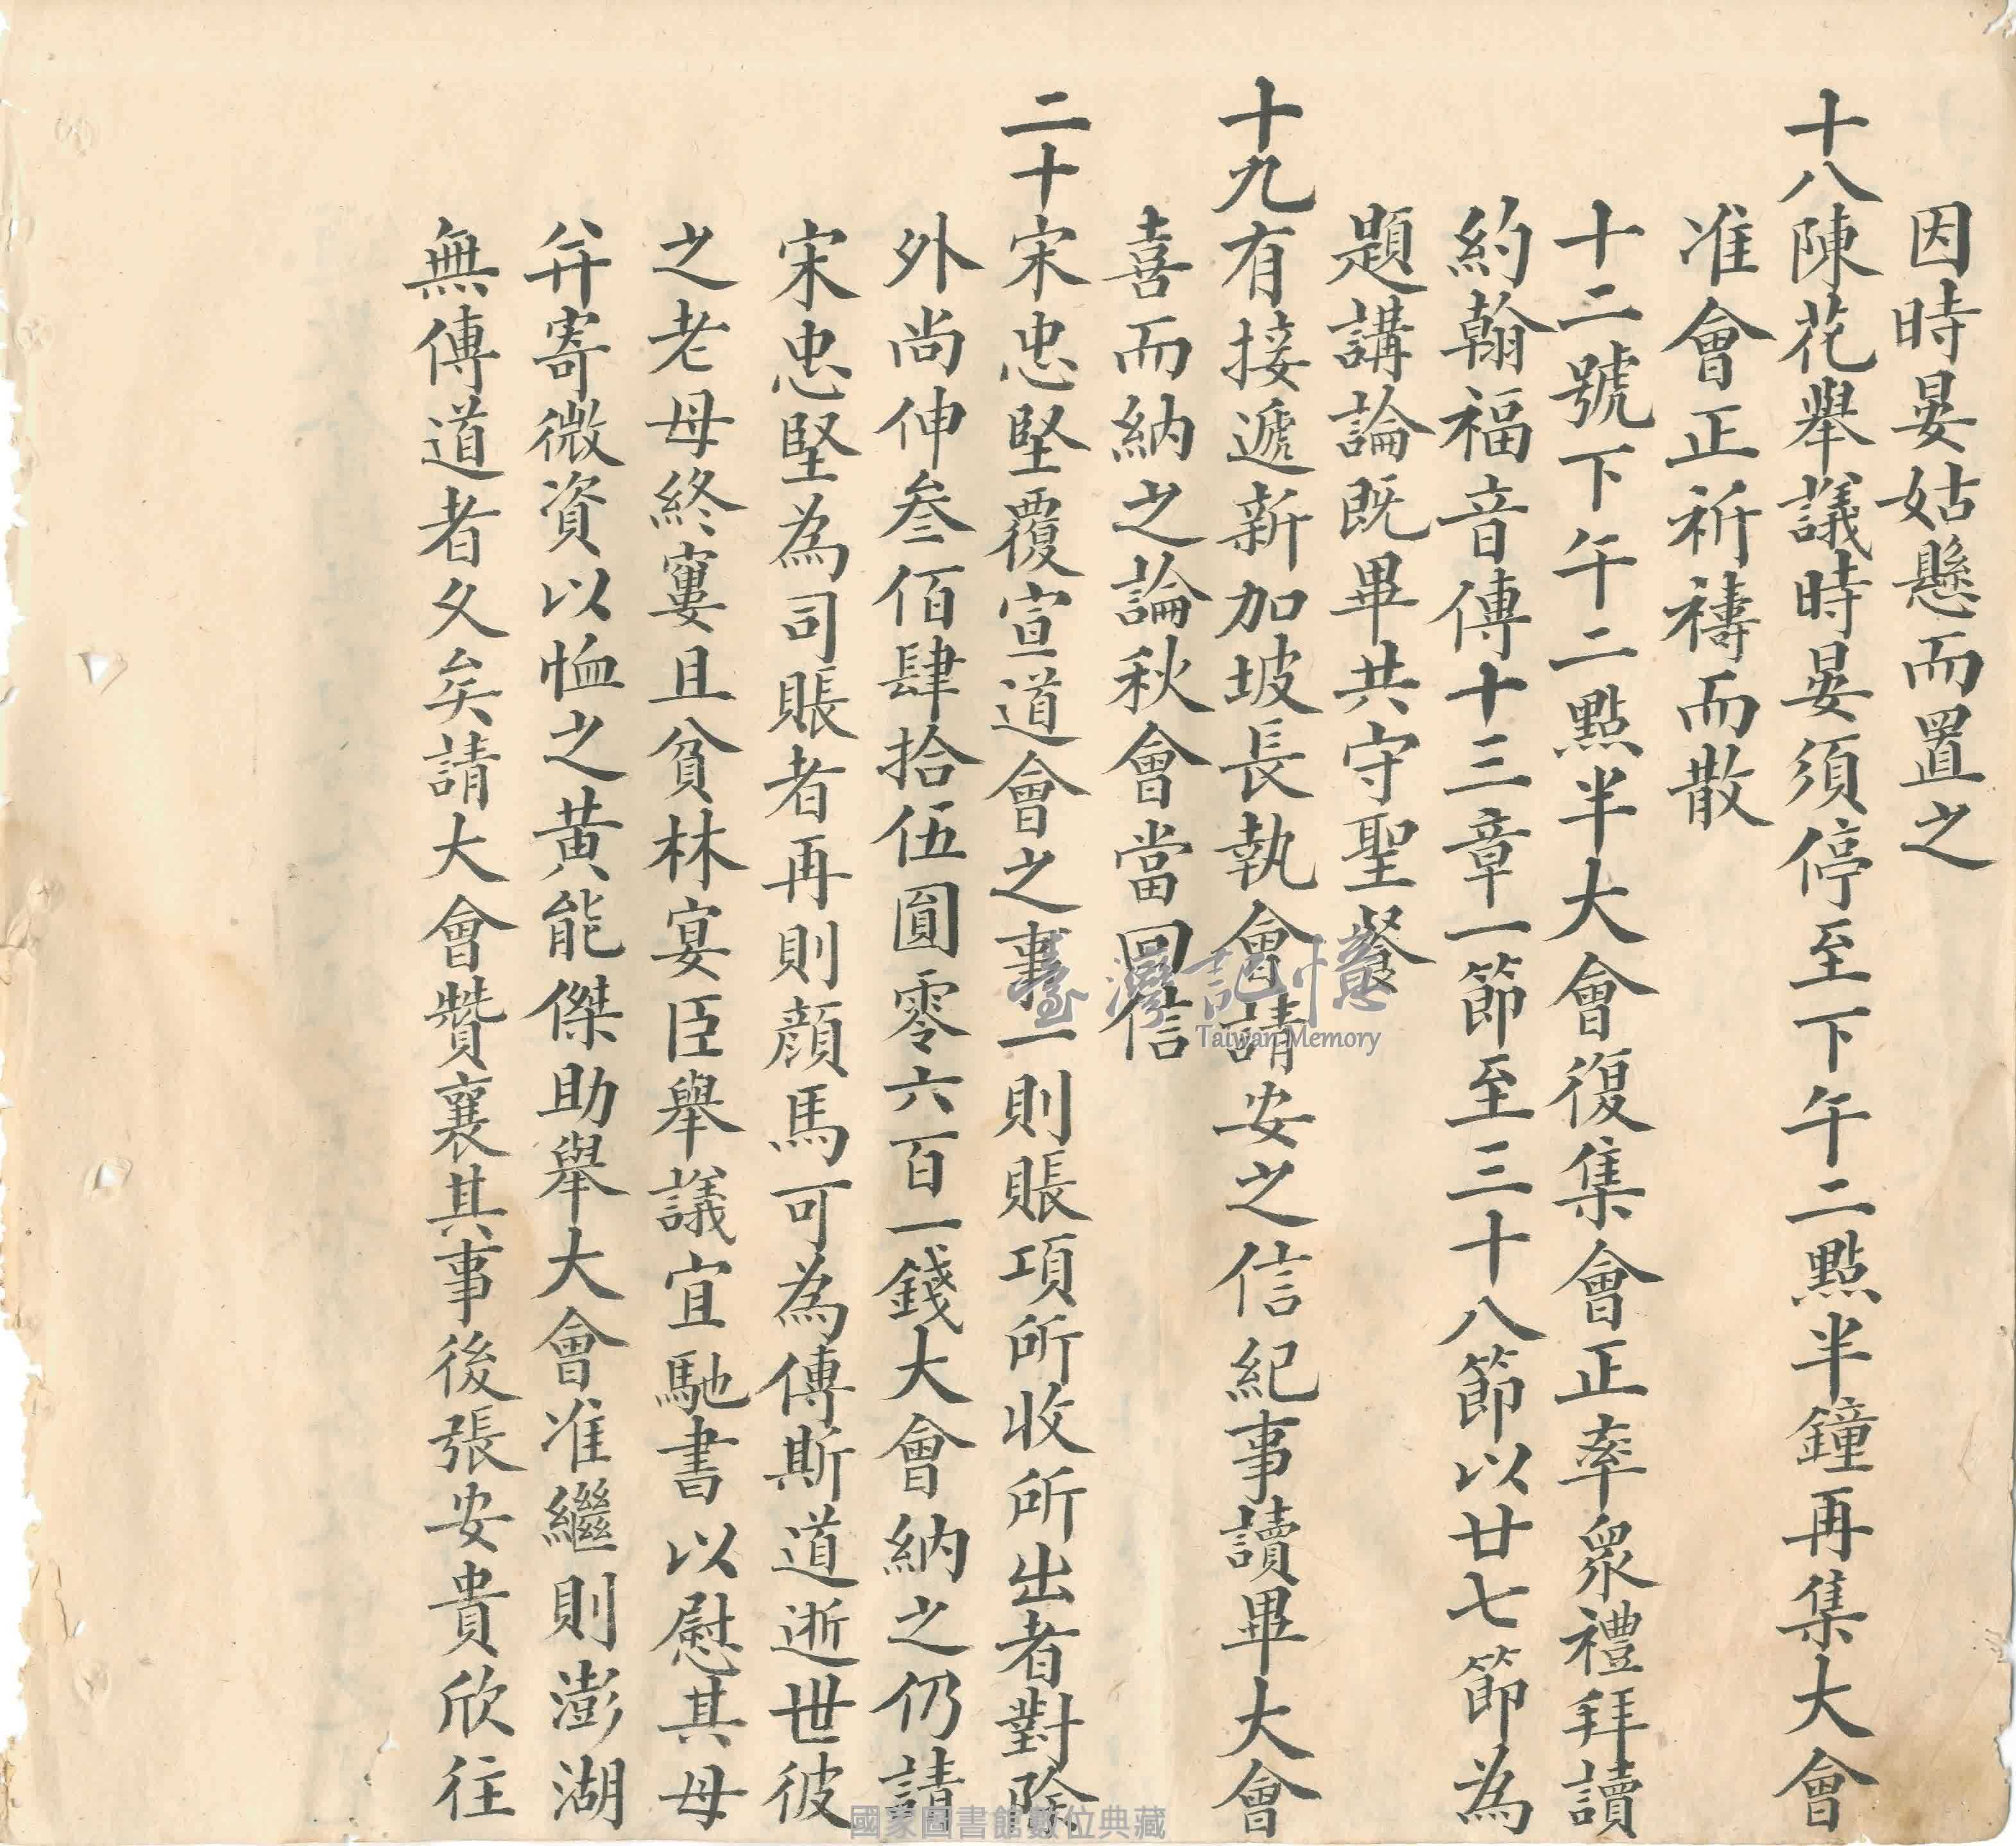 因時晏姑懸而置之
十八陳花舉議時晏須停至下午二點半鐘再集大會
准會正祈禱而散
十二號下午二點半大會復集會正率眾禮拜讀
約翰福音傳十三章一節至三十八節以廿七節為
題講論既畢共守聖餐
十九有接遞新加坡長執會請安之信紀事讀畢大會
喜而納之論秋會當回信
二十宋忠堅覆宣道會之事一則賬項所收所出者對除
外尚伸叁佰肆拾伍圓零六百一錢大會納之仍請
宋忠堅為司賬者再則顏馬可為傳斯道逝世彼
之老母終窶且貧林宴臣舉議宜馳書以慰其母
并寄微資以恤之黃能傑助舉大會准繼則澎湖
無傳道者久矣請大會贊襄其事後張安貴欣往
臺灣記憶
Taiwan Memory
國家圖書館數位典藏